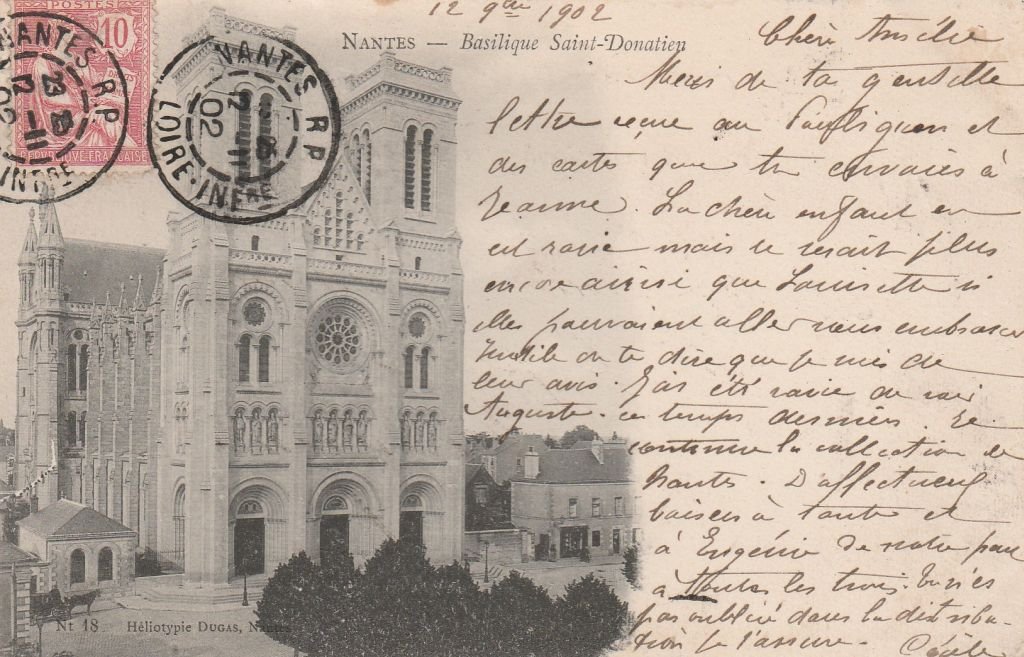 POSTES
10
REPUBLIQUE FRANÇAISE
NANTES R.P.
23
02
NANTES R.P.
LOIRE-INFRE
02
12 9bre 1902
NANTES — Basilique Saint-Donatien
Chère Amélie
Merci de ta gentille
lettre reçue au Pouliguen et
des cartes que tu envoies à
Jeanne. La chère enfant en
est ravie mais le serait plus
encore ainsi que Louisette si
elles pouvaient aller vous embrasser
Inutile de te dire que je suis de
leur avis. J'ai été ravie de voir
Auguste ce temps dernier. Je
continue la collection de
Nantes. D'affectueux
baisers à tante et
à Eugénie de notre part
à toutes les trois. Tu n'es
pas oubliée dans la distribu-
tion je t'assure. Cécile
Nt 18 Héliotypie DUGAS, Nantes